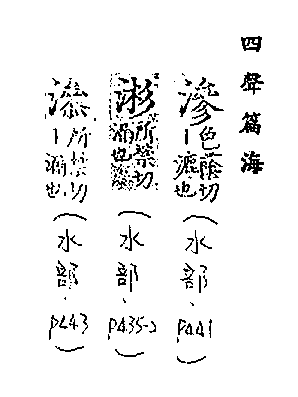 四聲篇海
滲色蔭切丨漉也(水部、P441)
渁所禁切滴也(水部、P435-2)
㴃所禁切丨漏也(水部、P443)